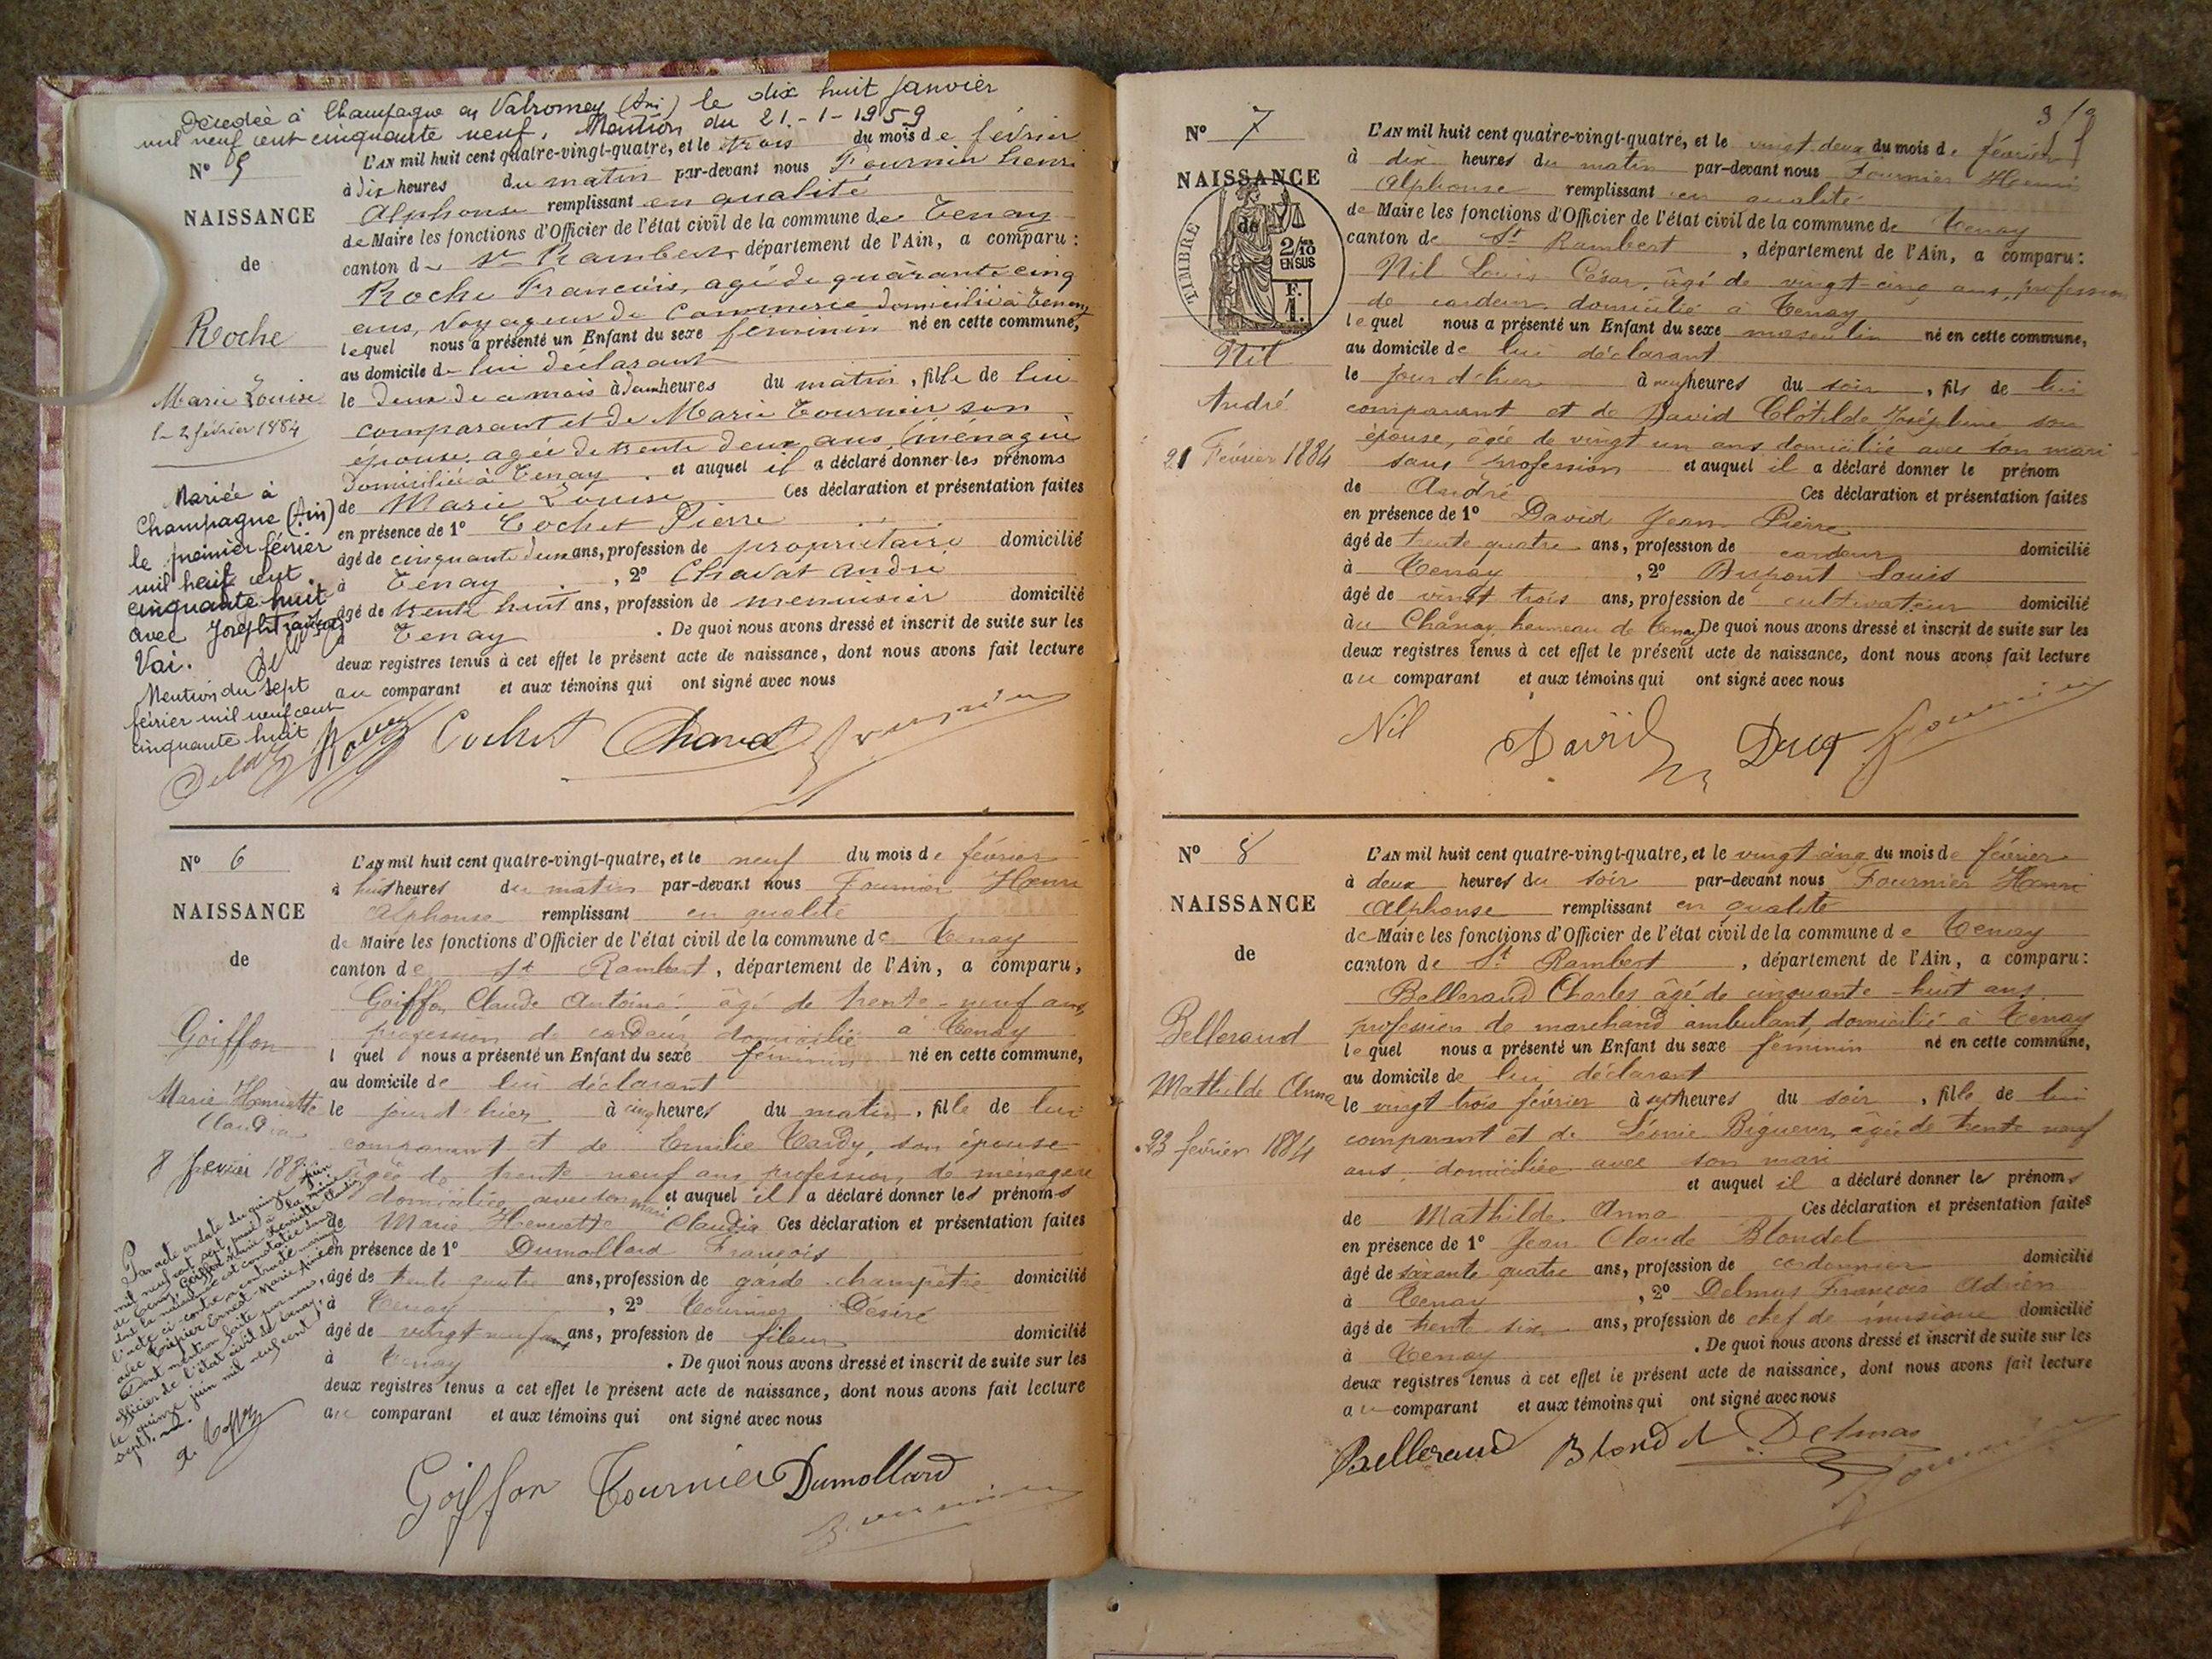 Décédée à Champagne en Valromey (Ain) le dix huit janvier
mil neuf cent cinquante neuf. Mention du 21-1-1959
N° 5
NAISSANCE
de
Roche
Marie Louise
le 2 février 1884
Mariée à
Champagne (Ain)
le premier février
mil neuf cent
cinquante huit
avec Joseph
Vai.
Mention du sept
février mil neuf cent
cinquante huit
L'AN mil huit cent quatre-vingt-quatre, et le trois du mois de février
à dix heures du matin par-devant nous Fournier henri
Alphonse remplissant en qualité
de Maire les fonctions d'Officier de l'état civil de la commune de Tenay
canton de St Rambert, département de l'Ain, a comparu :
Roche François, agé de quarante cinq
ans, Voyageur de Commerce domicilié à Tenay
lequel nous a présenté un Enfant du sexe féminin né en cette commune,
au domicile de lui déclarant
le deux de ce mois à deux heures du matin, fille de lui
comparant et de Marie Tournier son
épouse agée de trente deux ans, ménagère
Domiciliée à Tenay et auquel il a déclaré donner les prénoms
de Marie Louise Ces déclaration et présentation faites
en présence de 1° Cochet Pierre
âgé de cinquante deux ans, profession de propriétaire domicilié
à Tenay, 2° Chavat André
âgé de trente huit ans, profession de menuisier domicilié
à Tenay. De quoi nous avons dressé et inscrit de suite sur les
deux registres tenus à cet effet le présent acte de naissance, dont nous avons fait lecture
au comparant et aux témoins qui ont signé avec nous
Cochet Chavat Fournier
N° 6
NAISSANCE
de
Goiffon
Marie Henriette
Claudia
8 février 188
Par acte en date du quinze juin
mil neuf cent sept, passé à la mairie
de Tenay, Goiffon Marie Henriette Claudia
dont la naissance est constatée dans
l'acte ci-contre a contracté mariage
avec Ernest Marie Aimé
Dont mention faite par nous,
officier de l'état civil de Tenay,
le quinze juin mil neuf cent
sept.
L'AN mil huit cent quatre-vingt-quatre, et le neuf du mois de février
à huit heures du matin par-devant nous Fournier Henri
Alphonse remplissant en qualité
de Maire les fonctions d'Officier de l'état civil de la commune de Tenay
canton de St Rambert, département de l'Ain, a comparu,
Goiffon Claude Antoine âgé de trente-neuf ans,
profession de cardeur domicilié à Tenay
l quel nous a présenté un Enfant du sexe féminin né en cette commune,
au domicile de lui déclarant
le jour d'hier à cinq heures du matin, fille de lui
comparant et de Emilie Tardy, son épouse
âgée de trente-neuf ans, profession de ménagère
domiciliée avec son mari et auquel il a déclaré donner les prénoms
de Marie Henriette Claudia Ces déclaration et présentation faites
en présence de 1° Dumollard François
âgé de trente quatre ans, profession de garde champêtre domicilié
à Tenay, 2° Tournier Désiré
âgé de vingt neuf ans, profession de fileur domicilié
à Tenay. De quoi nous avons dressé et inscrit de suite sur les
deux registres tenus a cet effet le présent acte de naissance, dont nous avons fait lecture
au comparant et aux témoins qui ont signé avec nous
Goiffon Tournier Dumollard
Fournier
3
N° 7
NAISSANCE
de
TIMBRE
2/10
EN SUS
F.
1.
Nil
André
21 Février 1884
L'AN mil huit cent quatre-vingt-quatre, et le vingt-deux du mois de février
à dix heures du matin par-devant nous Fournier Henri
Alphonse remplissant en qualité
de Maire les fonctions d'Officier de l'état civil de la commune de Tenay
canton de St Rambert, département de l'Ain, a comparu :
Nil Louis César, âgé de vingt-cinq ans, profession
de cardeur domicilié à Tenay
lequel nous a présenté un Enfant du sexe masculin né en cette commune,
au domicile de lui déclarant
le jour d'hier à neuf heures du soir, fils de lui
comparant et de David Clotilde Joséphine son
épouse, âgée de vingt un ans domiciliée avec son mari
sans profession et auquel il a déclaré donner le prénom
de André Ces déclaration et présentation faites
en présence de 1° David Jean Pierre
âgé de trente quatre ans, profession de cardeur domicilié
à Tenay, 2° Dupont Louis
âgé de vingt trois ans, profession de cultivateur domicilié
au Chanay, hameau de Tenay De quoi nous avons dressé et inscrit de suite sur les
deux registres tenus à cet effet le présent acte de naissance, dont nous avons fait lecture
au comparant et aux témoins qui ont signé avec nous
Nil David Fournier
N° 8
NAISSANCE
de
Belleraud
Mathilde Anna
23 février 1884
L'AN mil huit cent quatre-vingt-quatre, et le vingt cinq du mois de février
à deux heures du soir par-devant nous Fournier Henri
Alphonse remplissant en qualité
de Maire les fonctions d'Officier de l'état civil de la commune de Tenay
canton de St Rambert, département de l'Ain, a comparu :
Belleraud Charles âgé de cinquante-huit ans
profession de marchand ambulant, domicilié à Tenay
lequel nous a présenté un Enfant du sexe féminin né en cette commune,
au domicile de lui déclarant
le vingt trois février à sept heures du soir, fille de lui
comparant et de Léonie Bigueur, âgée de trente neuf
ans, domiciliée avec son mari
et auquel il a déclaré donner les prénoms
de Mathilde Anna Ces déclaration et présentation faites
en présence de 1° Jean Claude Blondel
âgé de soixante quatre ans, profession de cordonnier domicilié
à Tenay, 2° Delmas François Adrien
âgé de trente six ans, profession de chef de musique domicilié
à Tenay. De quoi nous avons dressé et inscrit de suite sur les
deux registres tenus à cet effet le présent acte de naissance, dont nous avons fait lecture
au comparant et aux témoins qui ont signé avec nous
Belleraud Blondel Delmas
Fournier